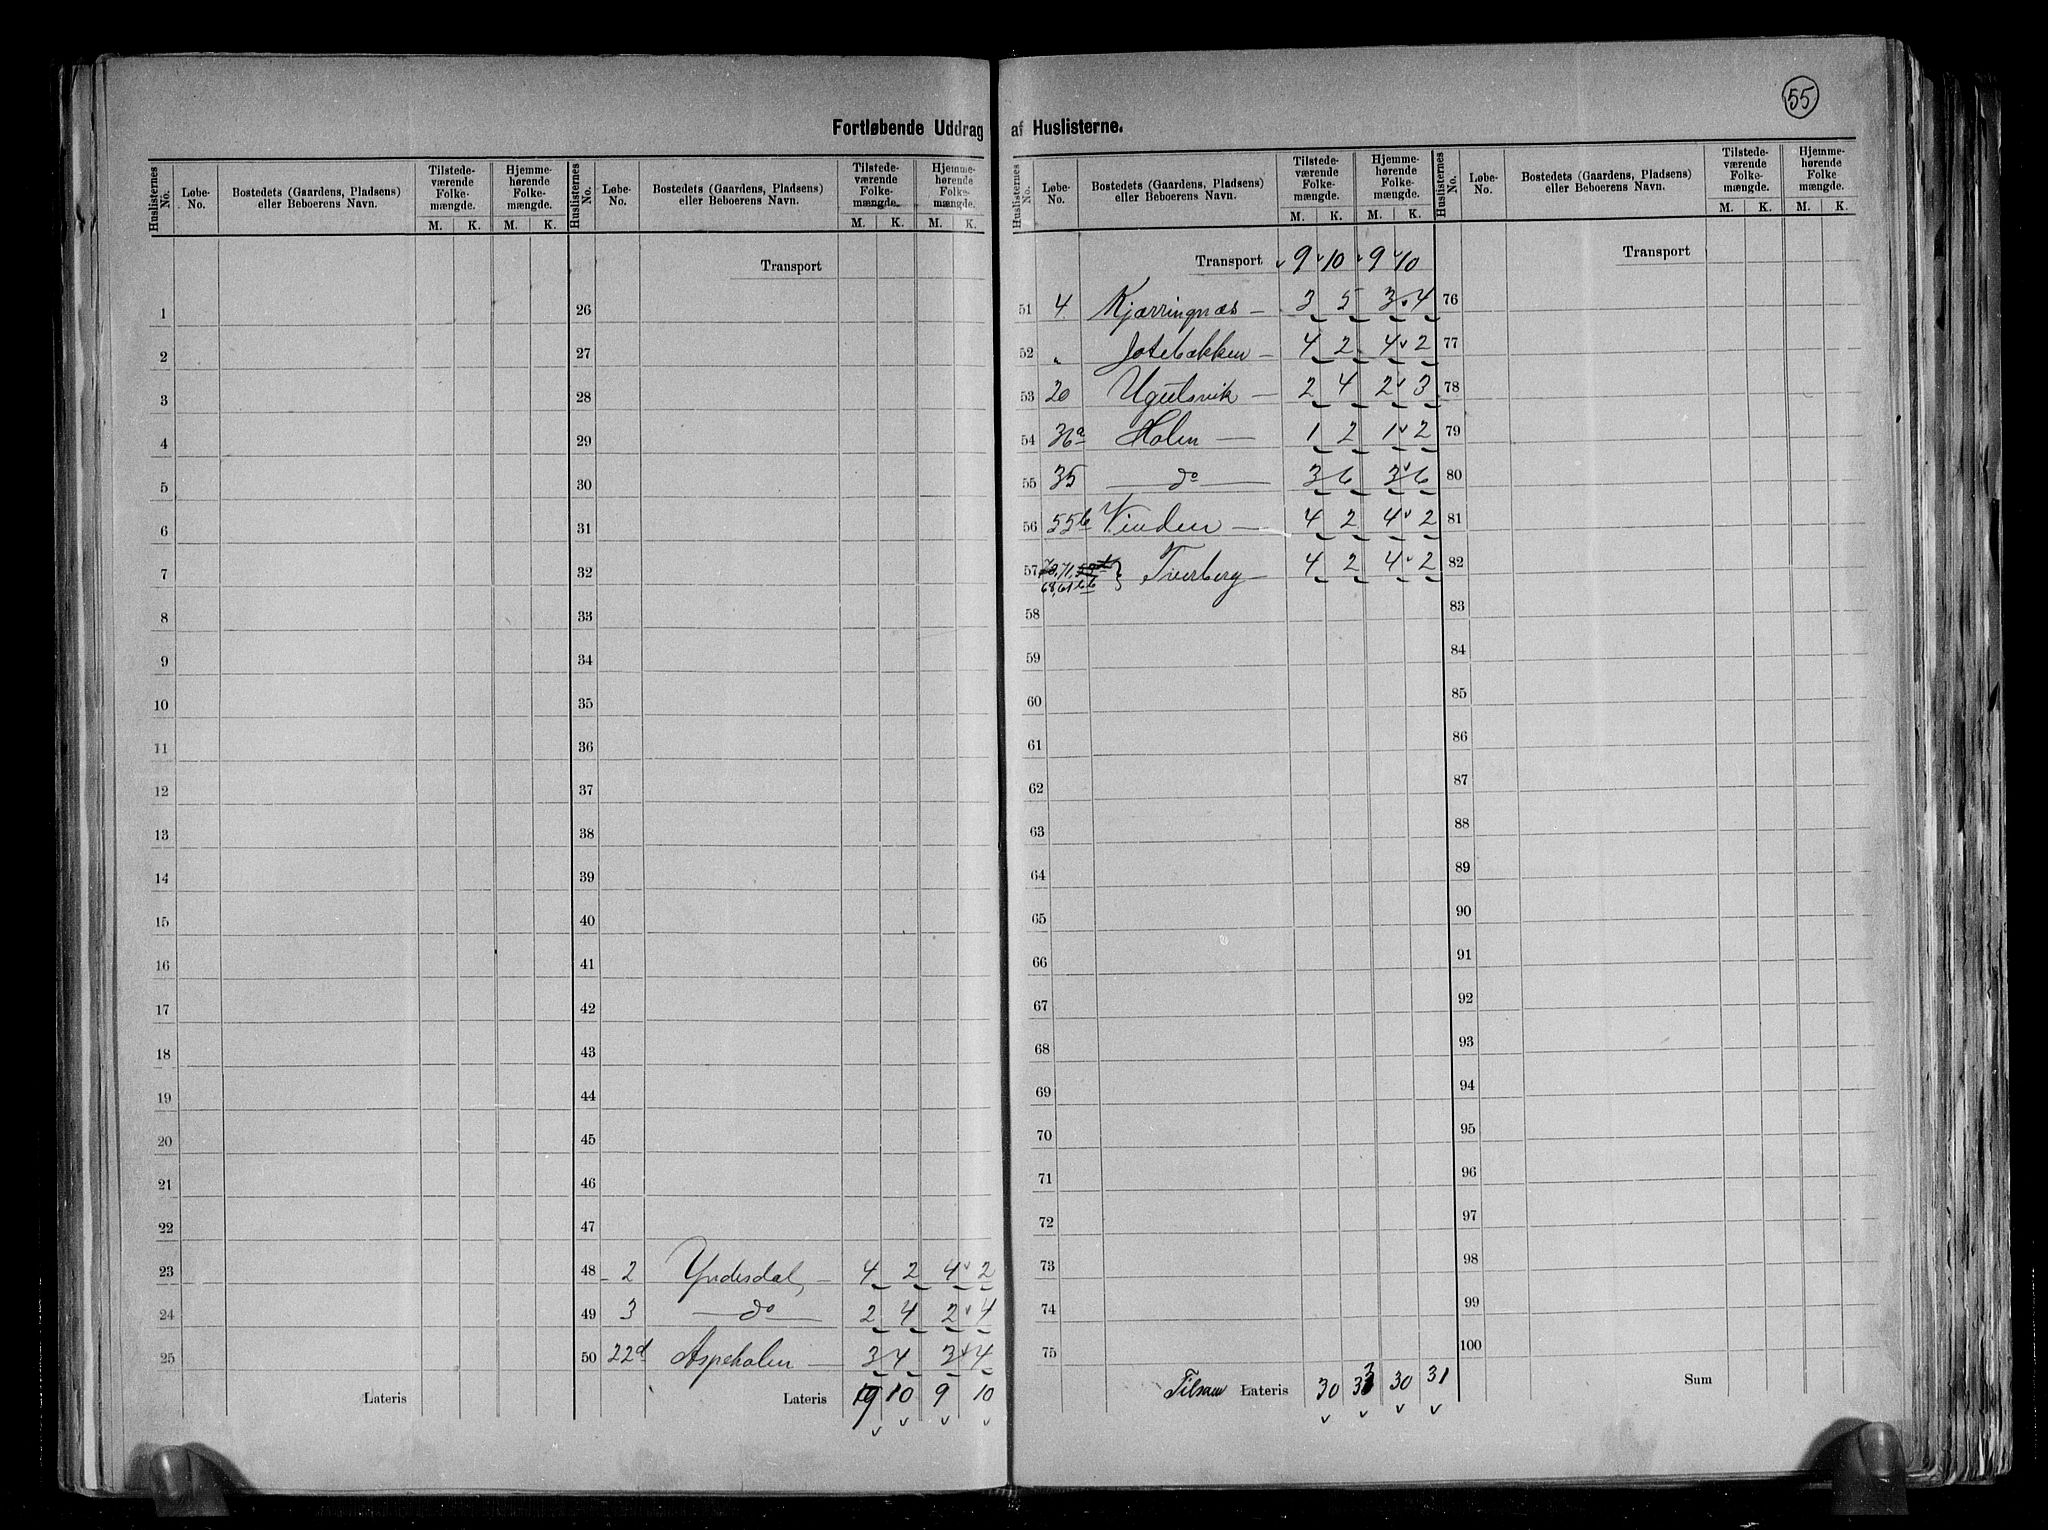 55
Fortløbende Uddrag af Huslisterne.
Huslisternes No. Løbe-No. Bostedets (Gaardens, Pladsens) eller Beboerens Navn. Tilstedeværende Folkemængde. M. K. Hjemmehørende Folkemængde. M. K.
Huslisternes No. Løbe-No. Bostedets (Gaardens, Pladsens) eller Beboerens Navn. Tilstedeværende Folkemængde. M. K. Hjemmehørende Folkemængde. M. K.
Transport
1 26
2 27
3 28
4 29
5 30
6 31
7 32
8 33
9 34
10 35
11 36
12 37
13 38
14 39
15 40
16 41
17 42
18 43
19 44
20 45
21 46
22 47
23 48 2 Yndesdal, — 4 2 4 2
24 49 3 — do — 2 4 2 4
25 50 22d Aspeholen — 3 4 3 4
Lateris Lateris 9 10 9 10
Huslisternes No. Løbe-No. Bostedets (Gaardens, Pladsens) eller Beboerens Navn. Tilstedeværende Folkemængde. M. K. Hjemmehørende Folkemængde. M. K.
Huslisternes No. Løbe-No. Bostedets (Gaardens, Pladsens) eller Beboerens Navn. Tilstedeværende Folkemængde. M. K. Hjemmehørende Folkemængde. M. K.
Transport 9 10 9 10 Transport
51 4 Kjærringnæs — 3 5 3 4 76
52 " Jotebakken — 4 2 4 2 77
53 20 Ugulsvik — 2 4 2 3 78
54 36a Holen — 1 2 1 2 79
55 35 — do — 3 6 3 6 80
56 55b Vinden — 4 2 4 2 81
57 71, Tverberg — 4 2 4 2 82
58 83
59 84
60 85
61 86
62 87
63 88
64 89
65 90
66 91
67 92
68 93
69 94
70 95
71 96
72 97
73 98
74 99
75 100
Tilsam Lateris 30 33 30 31 Sum